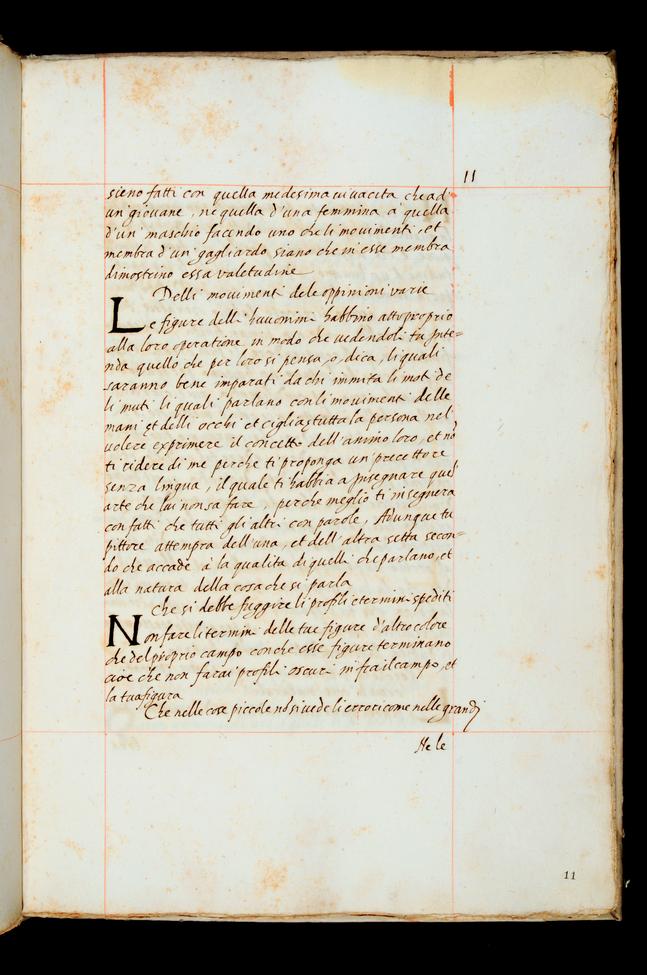 11
sieno fatti con quella medesima vivacita che ad'
un'giovane, ne quella d'una femmina a quella
d'un' maschio facendo uno che li movimenti, et
membra d'un' gagliardo siano che in'esse membra
dimostrino essa valetudine
Delli movimenti dele oppinioni varie
Le figure delli huuomini habbino atto proprio
alla loro operatione in modo che vedendoli tu inte=
nda quello che per loro si pensa, o, dica, li quali
saranno bene imparati da chi immita li moti de
li muti li quali parlano con li movimenti delle
mani et delli occhi et ciglia et tutta la persona nel'
volere exprimere il concetto dell'animo loro, et nō
ti ridere di me perche ti proponga un'precettore
senza lingua, il quale ti habbia a insegnare quel'
arte che lui non sa fare, perche meglio ti insegnera
con fatti che tutti gli altri con parole, Adunque tu
pittore attempra dell'una, et dell'altra setta secon=
do che accade a la qualita di quelli che parlano, et
alla natura della cosa che si parla
Che si debbe fuggire li profili e termini spediti
Non fare li termini delle tue figure d'altro colore
che del proprio campo con che esse figure terminano
cioe che non farai profili oscuri infra il campo, et
la tua figura
Che nelle cose piccole nō si vede li errori come nelle grandi
Ne le
11